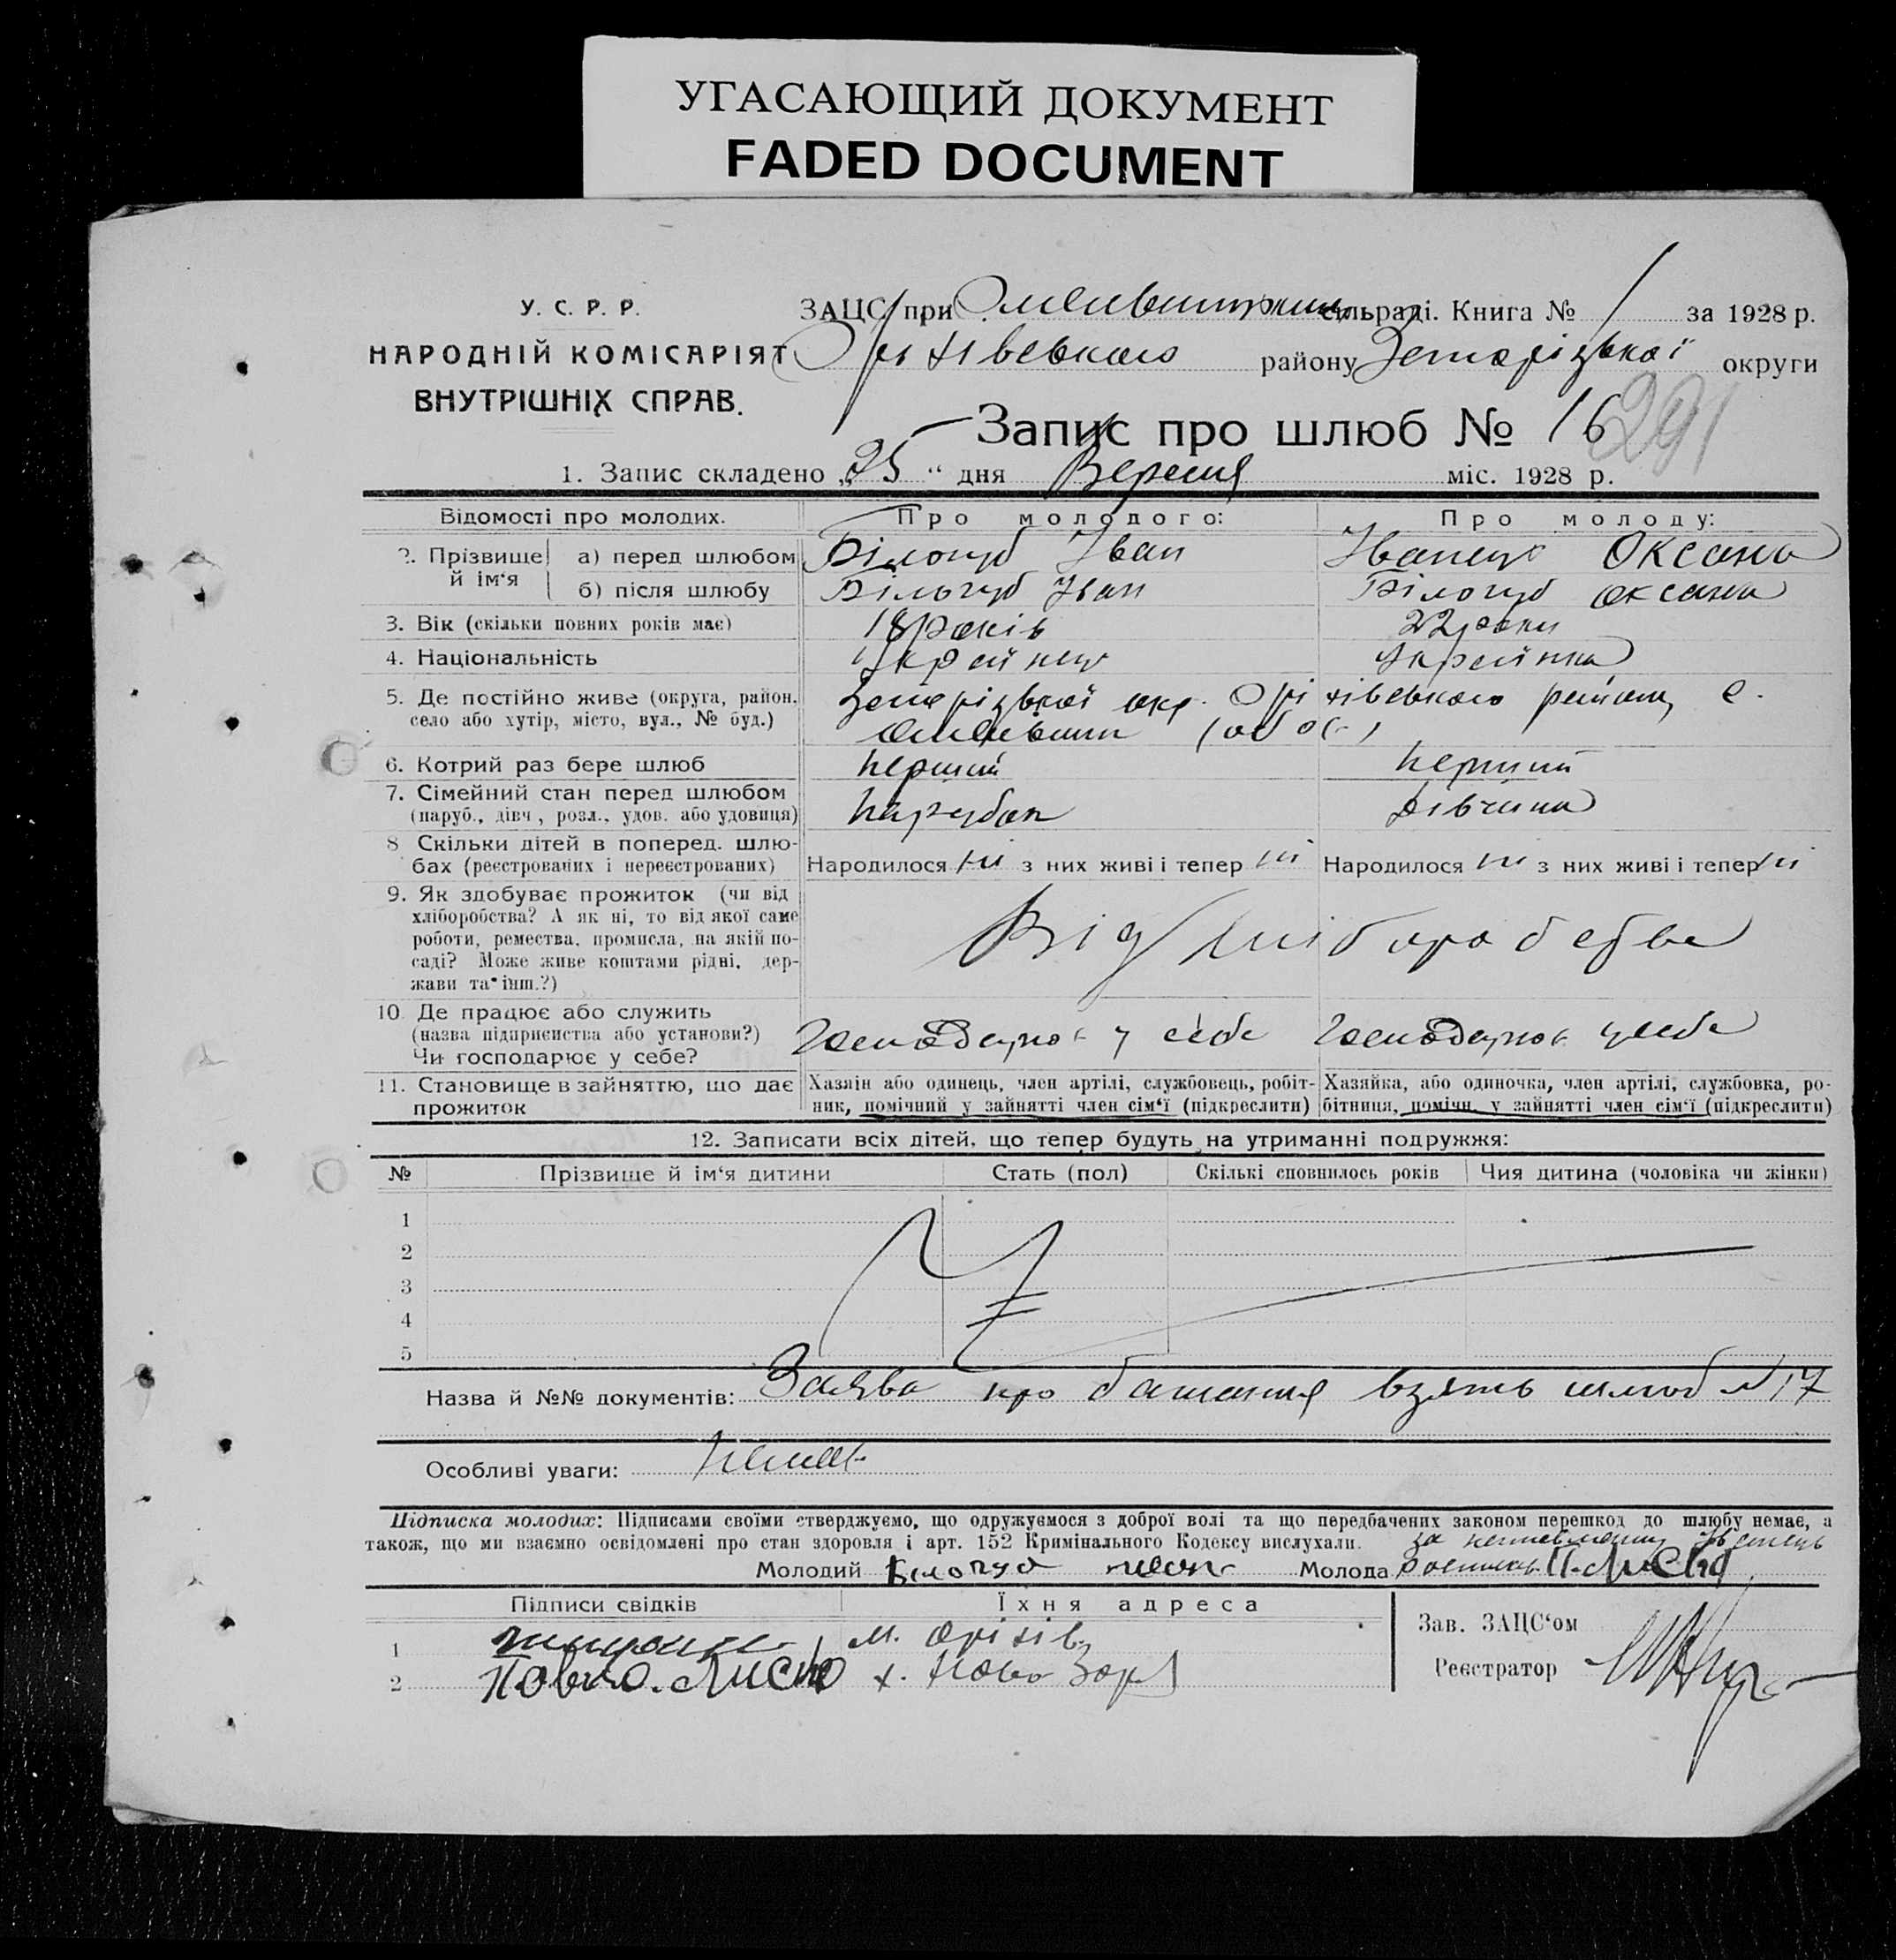 УГАСАЮЩИЙ ДОКУМЕНТ
FADED DOCUMENT
У. С. Р. Р.
НАРОДНІЙ КОМІСАРІЯТ
ВНУТРІШНІХ СПРАВ.
ЗАЦС при сільраді. Книга № 1 за 1928 р.
Оріхівського району Запорізької округи
Запис про шлюб № 16
291
1. Запис складено „25“ дня Вересня міс. 1928 р.
Відомості про молодих. Про молодого: Про молоду:
2. Прізвище й ім‘я а) перед шлюбом Білогуб Іван Іванець Оксана
б) після шлюбу Білогуб Іван Білогуб Оксана
3. Вік (скільки повних років має) 18 років 22 роки
4. Національність Українец Українка
5. Де постійно живе (округа, район, Запорізької окр. Оріхівського району с.
село або хутір, місто, вул., № буд.) (обоє)
6. Котрий раз бере шлюб перший перший
7. Сімейний стан перед шлюбом
(паруб., дівч., розл., удов. або удовиця) парубок дівчина
8 Скільки дітей в поперед. шлю-
бах (реєстрованих і нереєстрованих) Народилося ні з них живі і тепер ні Народилося ні з них живі і тепер ні
9. Як здобуває прожиток (чи від
хліборобства? А як ні, то від якої саме
роботи, ремества, промисла, на якій по- Від хліборобства
саді? Може живе коштами рідні, дер-
жави та інш.?)
10 Де працює або служить
(назва підприємства або установи?) Господарює у себе Господарює у себе
Чи господарює у себе?
11. Становище в зайняттю, що дає Хазяін або одинець, член артілі, службовець, робіт- Хазяйка, або одиночка, член артілі, службовка, ро-
прожиток ник, помічний у зайнятті член сім‘ї (підкреслити) бітниця, помічн. у зайнятті член сім‘ї (підкреслити)
12. Записати всіх дітей, що тепер будуть на утриманні подружжя:
№ Прізвище й ім‘я дитини Стать (пол) Скількі сповнилось років Чия дитина (чоловіка чи жінки)
1
2
3
4
5
Назва й №№ документів: Заява про бажання взять шлюб №17
Особливі уваги: немає
Підписка молодих: Підписами своїми стверджуємо, що одружуємося з доброї волі та що передбачених законом перешкод до шлюбу немає, а
також, що ми взаємно освідомлені про стан здоровля і арт. 152 Кримінального Кодексу вислухали.
за неписьменну Іванець
Молодий Білогуб Іван Молода П. Лисна
Підписи свідків Їхня адреса
Зав. ЗАЦС‘ом
1 м. Оріхів
Реєстратор
2 х. Нова Зоря